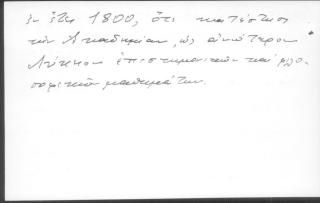 ἐν ἔτει 1800, ὅτι κατέστησε
τὴν Ἀκαδημίαν, ὡς ἀνώτερον
Λύκειον ἐπιστημονικῶν καὶ φιλο-
σοφικῶν μαθημάτων.